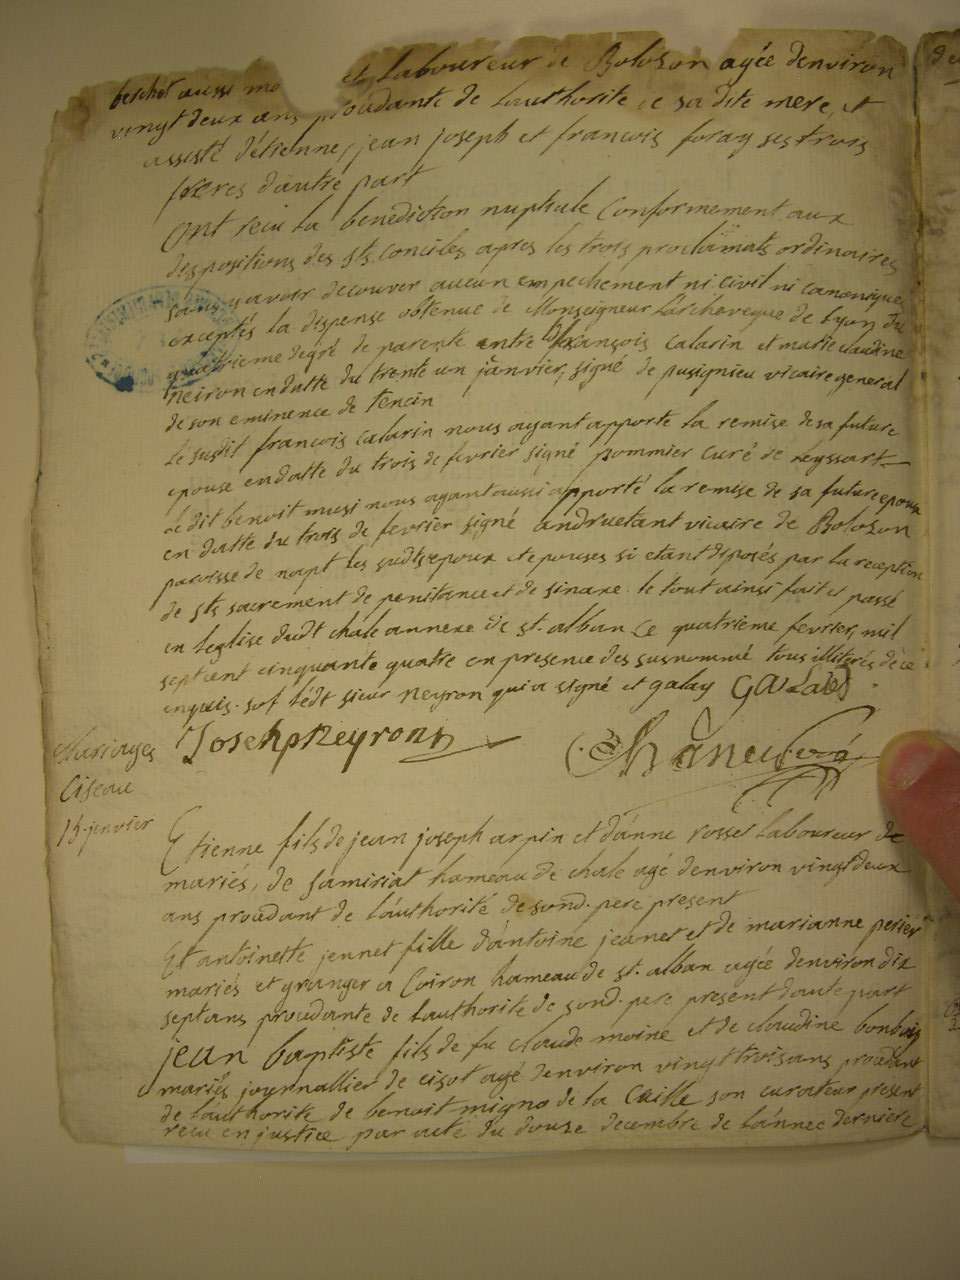 berchet aussi et laboureur de Bolozon agée denviron
vingt deux ans procedante de lauthorité de sa dite mere, et
assisté détienne, jean joseph et francois foray ses trois
freres d'autre part
Ont recu la benediction nuptiale Conformement aux
dispositions des sts conciles apres les trois proclamats ordinaires
sans y avoir decouver aucun empechement ni civil ni canonique
exceptés la dispense obtenue de Monseigneur Larcheveque de Lyon du
quatrieme degré de parenté entre françois Calarin et marie claudine
neiron en datte du trente un janvier, signé de pusignieu vicaire general
de son eminence de tencin
Le susdit francois calarin nous ayant apporté la remise de sa future
epouse en datte du trois de fevrier signé pommier curé de Leyssart
Le dit benoit musi nous ayant aussi apporté la remise de sa future epouse
en datte du trois de fevrier signé andruetant vicaire de Bolozon
paroisse de napt les sudts epoux et epouses si etant disposés par la reception
de sts sacrement de penitance et de sinaxe. le tout ainsi fait et passé
en leglise dudt chale annexe de st. alban Ce quatrieme fevrier, mil
sept cent cinquante quatre en presence des susnommé tous illiterés de ce
enquis. sof ledt sieur neyron qui a signé et galay Galai
Joseph Neyron
Mariages
Ciseau
15 janvier
Etienne fils de jean joseph arpin et d'anne rosset Laboureur de
mariés, de Samiriat hameau de chale agé denviron vingt deux
ans procedant de l'authorité de sond. pere present
Et antoinette jennet fille d'antoine jeanet et de marianne perier
mariés et granger a Coiron hameau de st. alban agée denviron dix
sept ans procedante de lauthorité de sond. pere present dautre part
jean baptiste fils de fu claude moine et de claudine bonbois
mariés journallier de cisot agé denviron vingt trois ans procedant
de lauthorité de benoit migno de la Cuille son curateur present
recu en justice par acte du douse decembre de l'année derniere